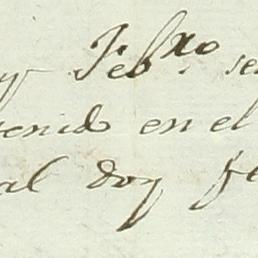 y Feb.ro se
tenido en el
al doy fe